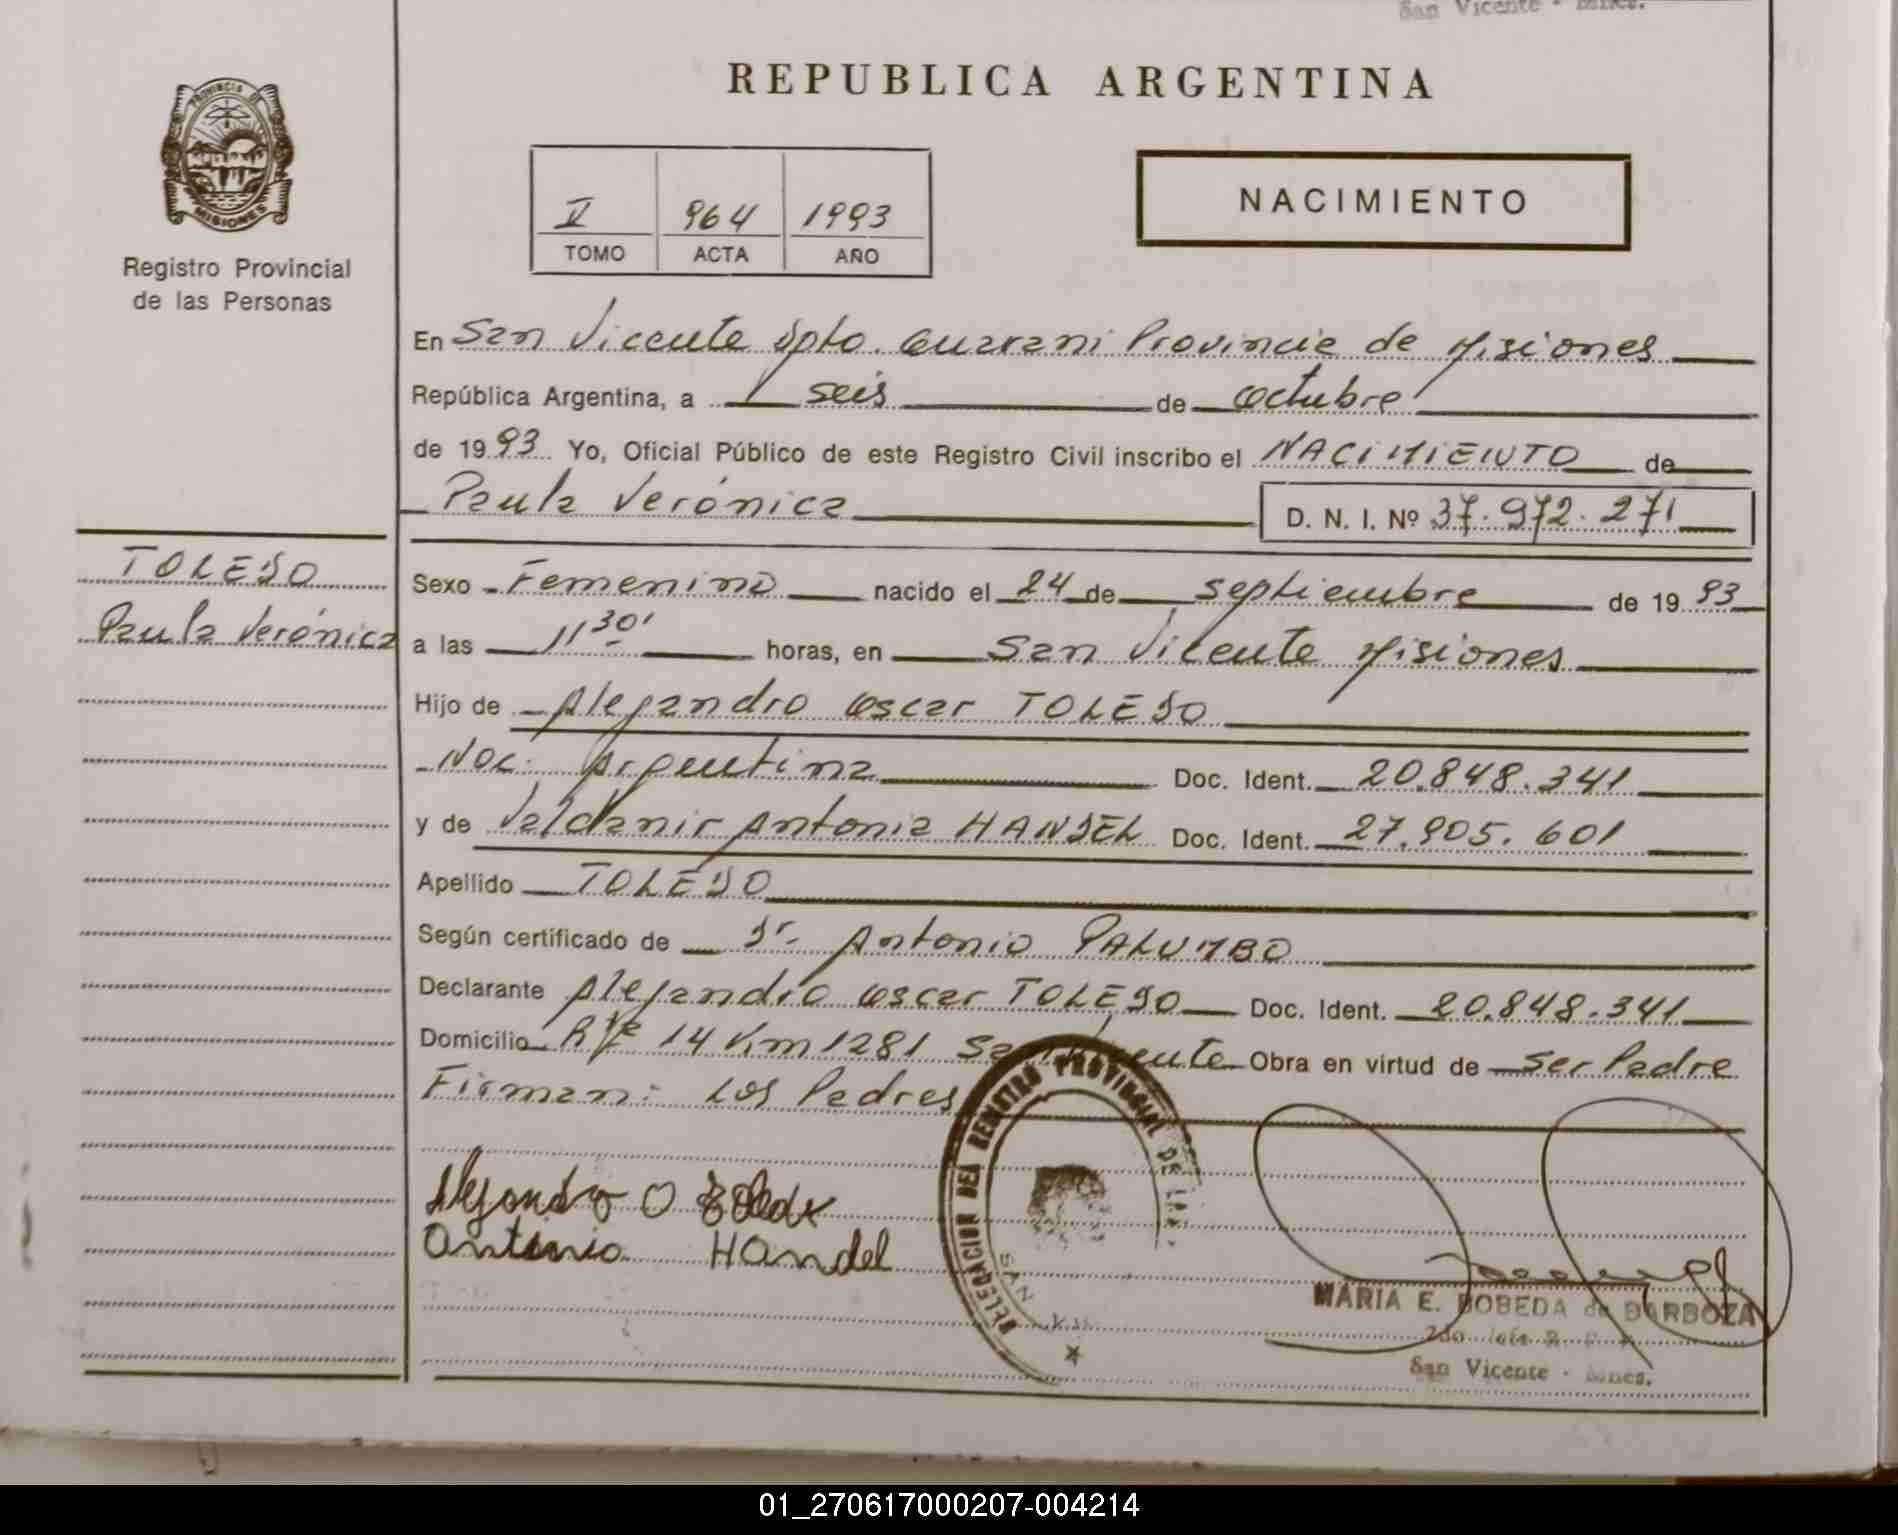 San Vicente - Mnes.
REPUBLICA ARGENTINA
PROVINCIA DE
MISIONES
Registro Provincial
de las Personas
V 964 1993
TOMO ACTA AÑO
NACIMIENTO
En San Vicente Dpto. Guarani Provincia de Misiones
República Argentina, a seis de octubre
de 1993 Yo, Oficial Público de este Registro Civil inscribo el NACIMIENTO de
Paula Verónica D. N. I. Nº 37.972.271
TOLEDO
Paula Verónica
Sexo Femenino nacido el 24 de septiembre de 1993
a las 11 30' horas, en San Vicente Misiones
Hijo de Alejandro Oscar TOLEDO
Nac. Argentina Doc. Ident. 20.848.341
y de Valdenir Antonia HANDEL Doc. Ident. 27.905.601
Apellido TOLEDO
Según certificado de Dr. Antonio PALUMBO
Declarante Alejandro Oscar TOLEDO Doc. Ident. 20.848.341
Domicilio R 14 Km 1281 San Vicente Obra en virtud de ser Padre
Firman: Los Padres
DELEGACION DEL REGISTRO PROVINCIAL DE LAS
SAN
Alejandro O Toledo
Antonia Handel
MARIA E. BOBEDA de BARBOZA
San Vicente - Mnes.
01_270617000207-004214